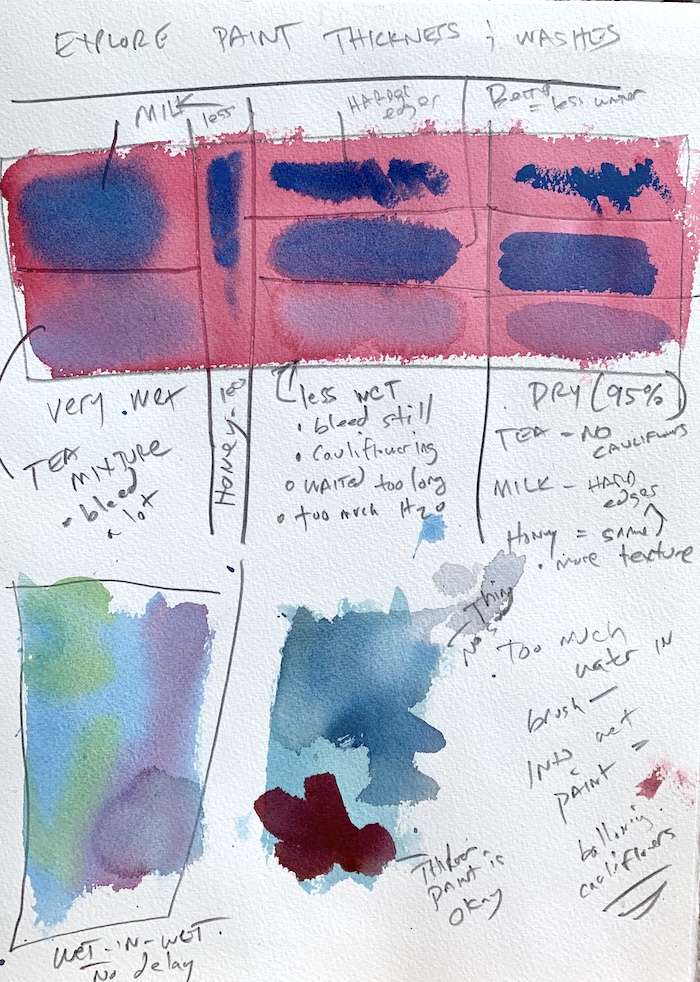 EXPLORE PAINT THICKNESS & WASHES
MILK
less
HARDER
edges
= less water
very wet
TEA
MIXTURE
• bleed
a lot
Honey-
less wet
• bleed still
• cauliflowering
• waited too long
• too much H2O
DRY (95%)
TEA - NO
CAULIFLOWERS
MILK - HARD
edges
Honey = same
• more texture
Thin
No
Too much
water in
brush -
INTO wet
paint =
cauliflowers
Thicker
paint is
okay
WET-IN-WET.
No delay